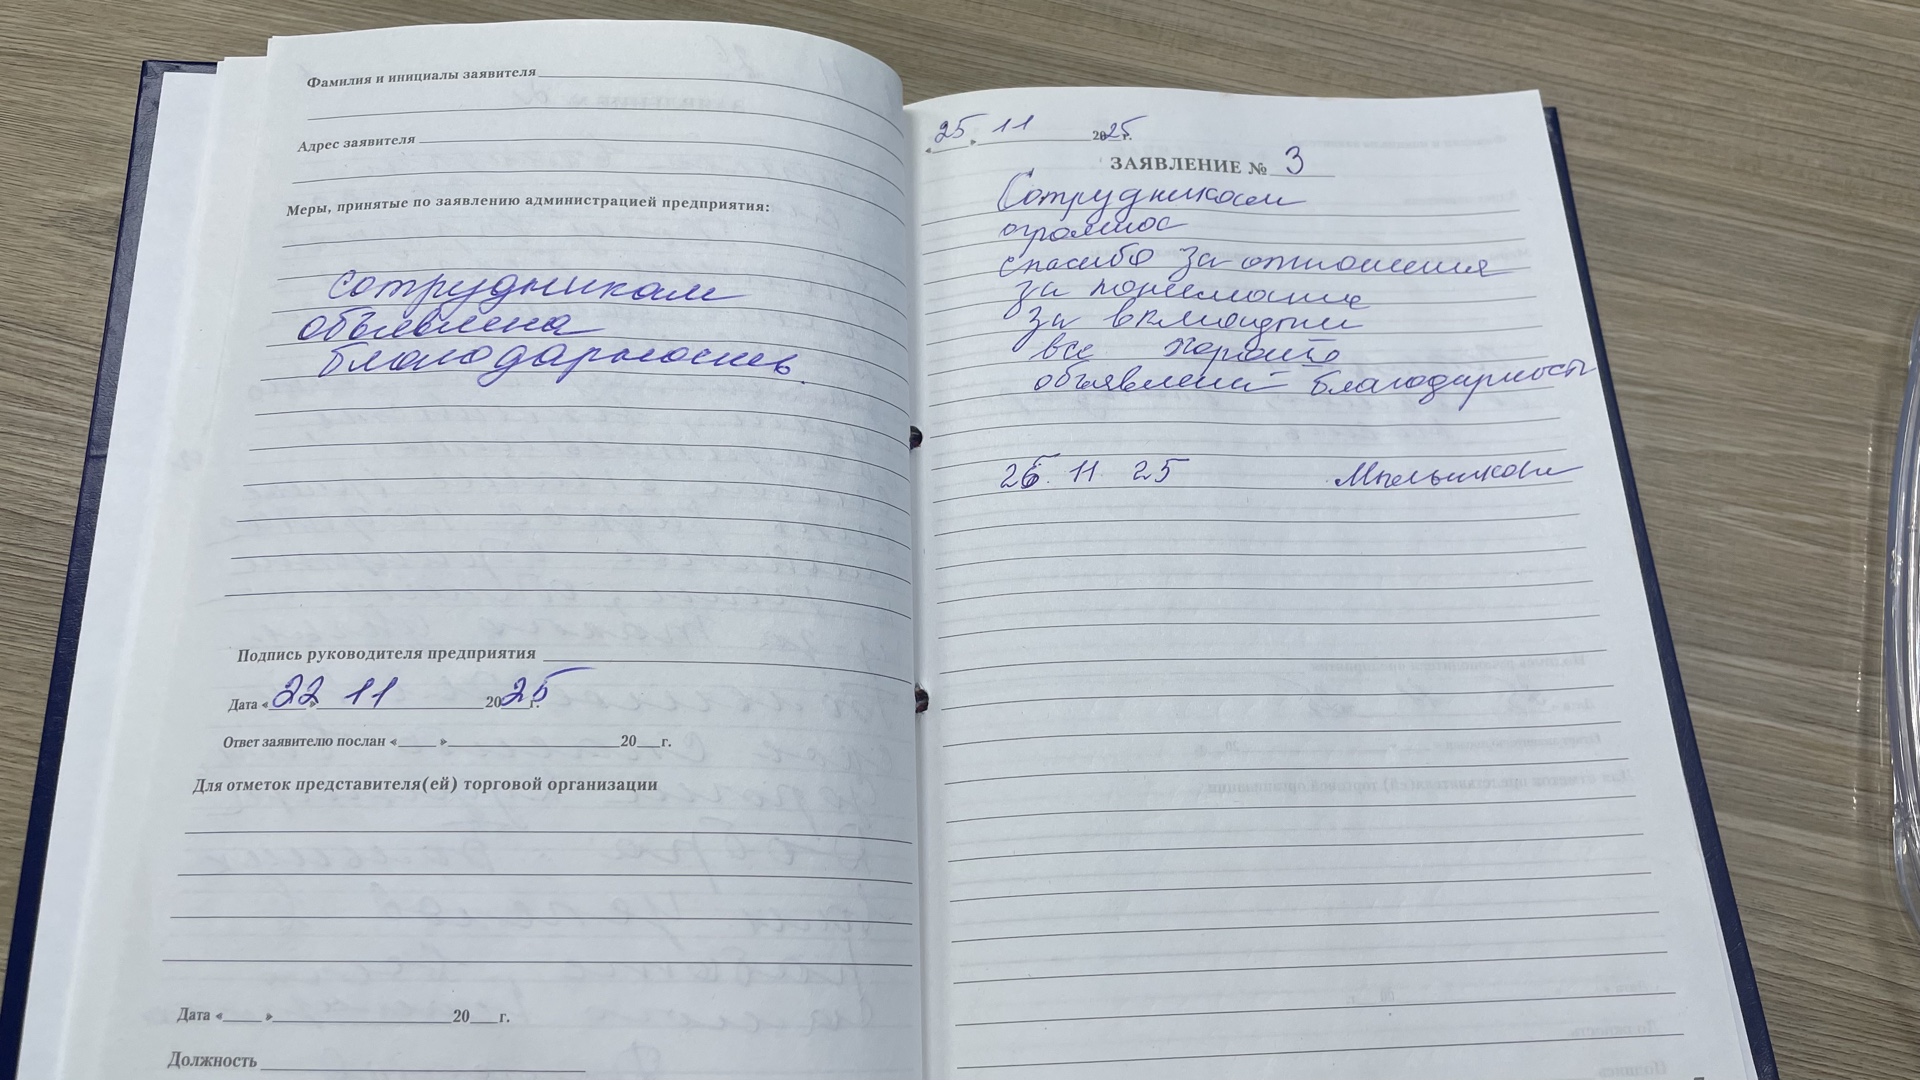 Фамилия и инициалы заявителя
Адрес заявителя
Меры, принятые по заявлению администрацией предприятия:
Сотрудникам
объявлена
благодарность.
Подпись руководителя предприятия
Дата «22» 11 2025г.
Ответ заявителю послан «___» ___ 20__г.
Для отметок представителя(ей) торговой организации
Дата «___» ___ 20__г.
Должность
«25» 11 2025г.
ЗАЯВЛЕНИЕ № 3
Сотрудникам
огромное
спасибо за отношения
за понимание
за
все хорошо
благодарность
26. 11. 25